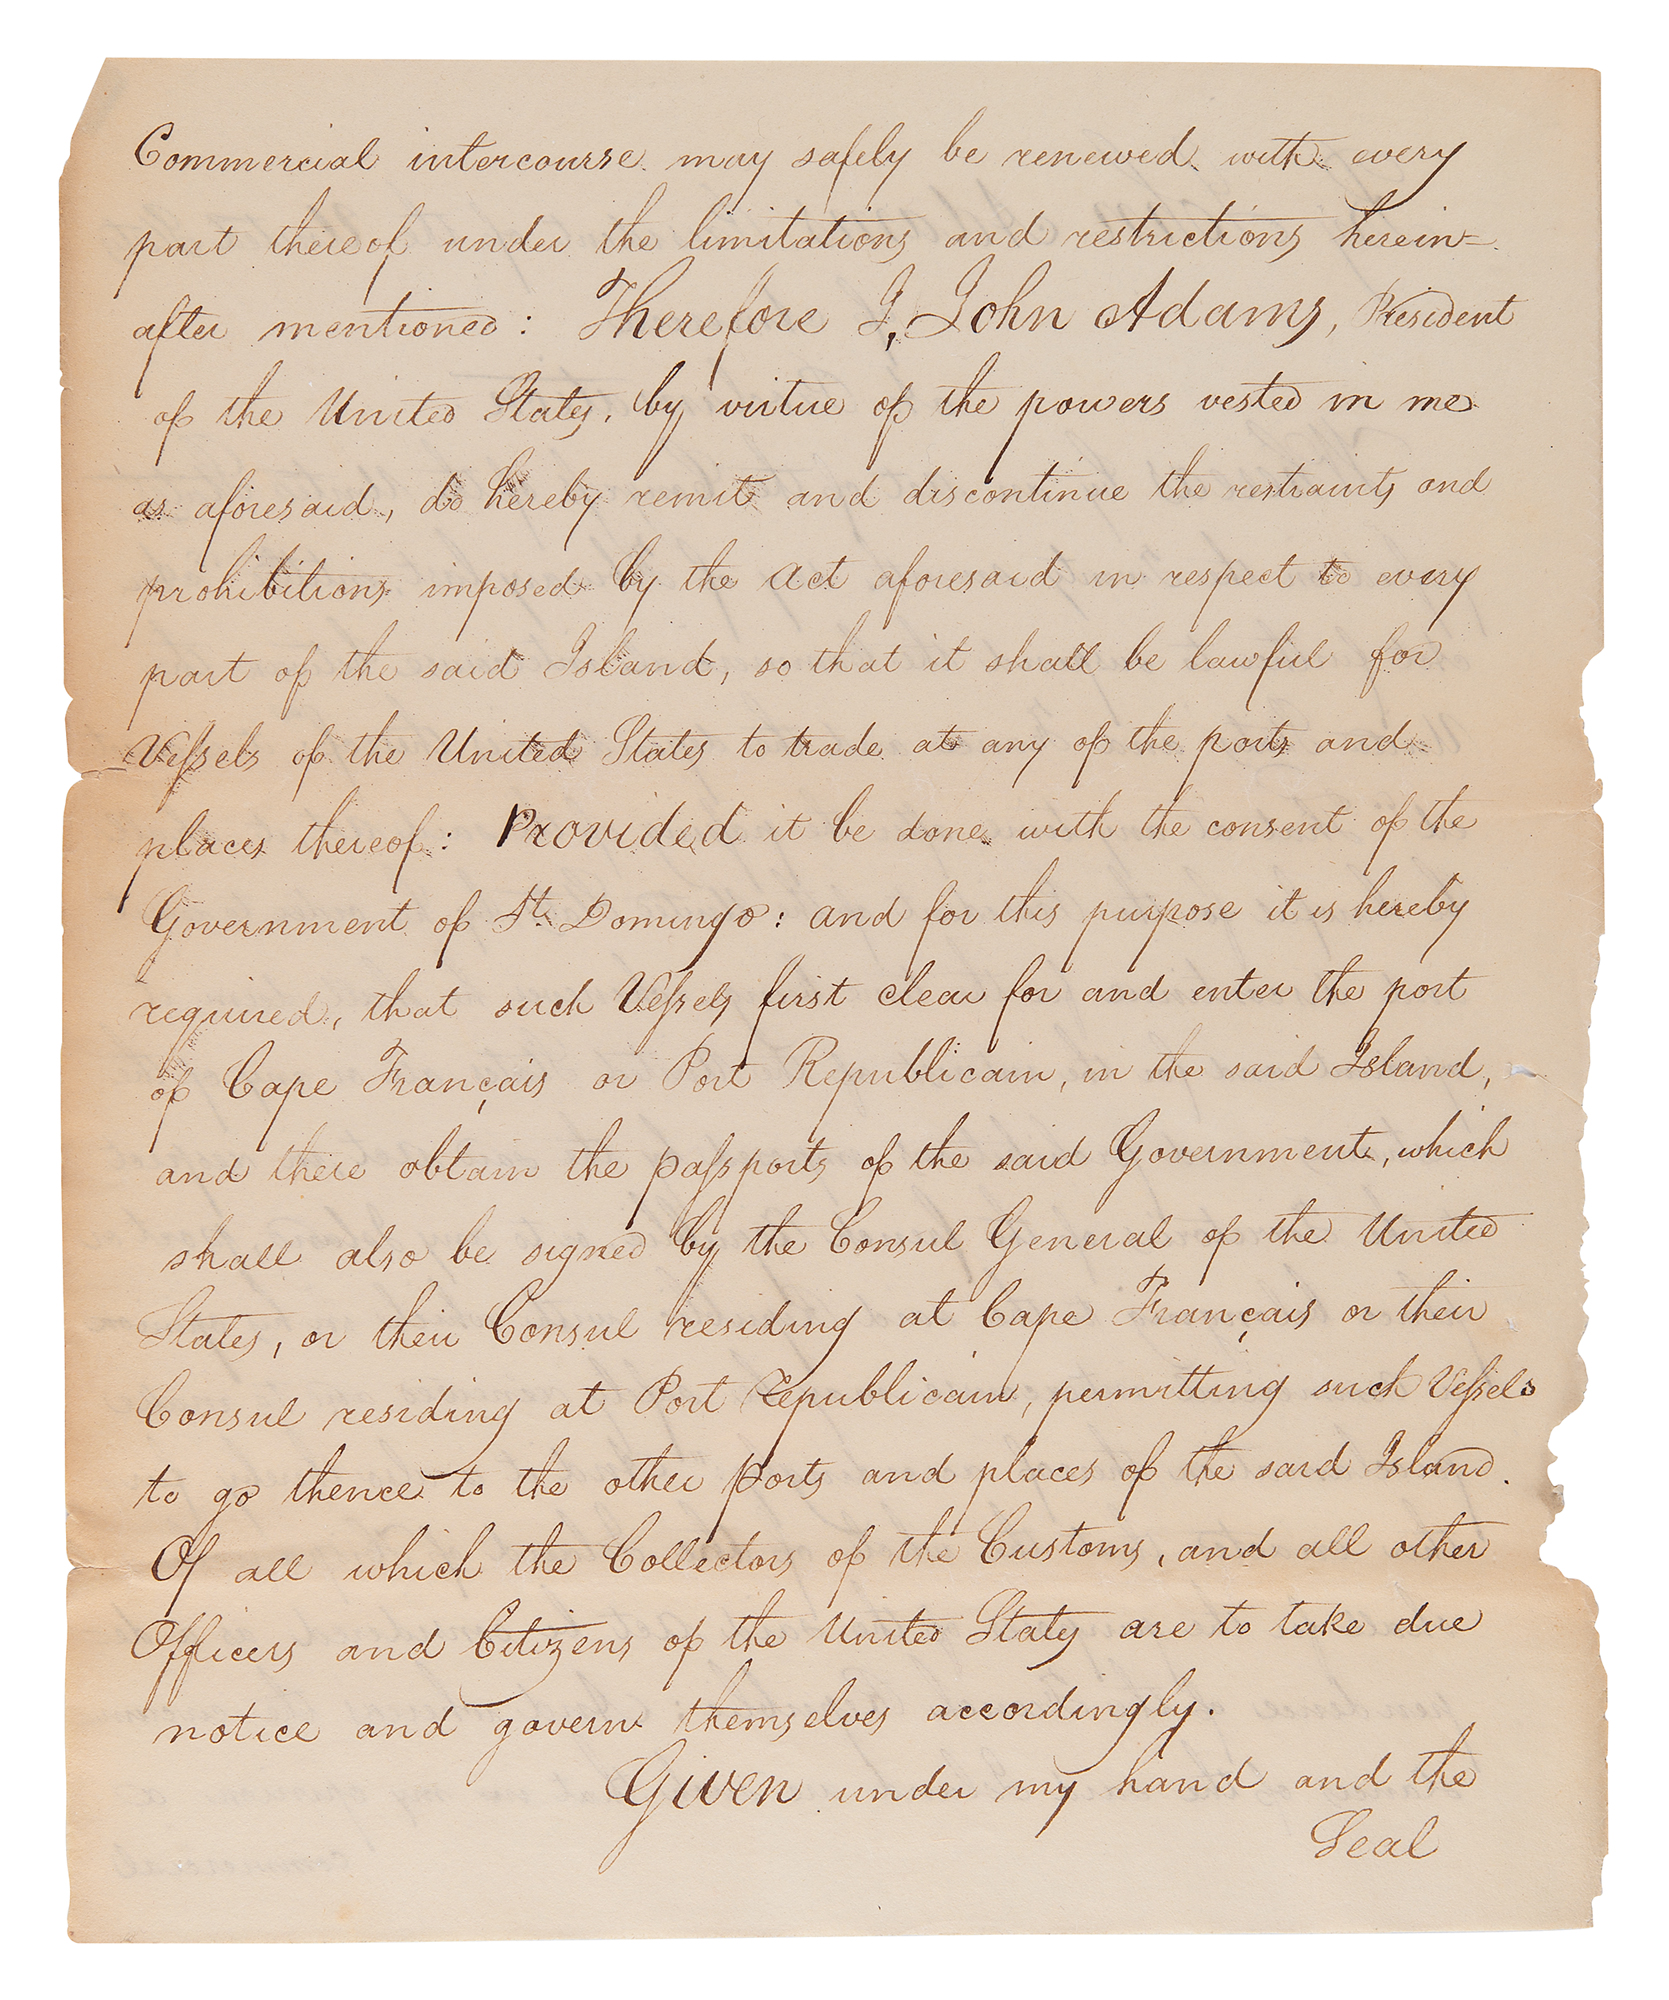 Commercial intercourse may safely be renewed with every
part thereof under the limitations and restrictions herein=
after mentioned: Therefore I, John Adams, President
of the United States, by virtue of the powers vested in me
as aforesaid, do hereby remit and discontinue the restraints and
prohibitions imposed by the Act aforesaid in respect to every
part of the said Island, so that it shall be lawful for
Veſsels of the United States to trade at any of the ports and
places thereof: Provided it be done with the consent of the
Government of St. Domingo: and for this purpose it is hereby
required, that such Veſsels first clear for and enter the port
of Cape Français or Port Republicain, in the said Island,
and there obtain the paſsports of the said Government, which
shall also be signed by the Consul General of the United
States, or their Consul residing at Cape Français or their
Consul residing at Port Republicain, permitting such Veſsels
to go thence to the other ports and places of the said Island.
Of all which the Collectors of the Customs, and all other
Officers and Citizens of the United States are to take due
notice and govern themselves accordingly.
Given under my hand and the
Seal